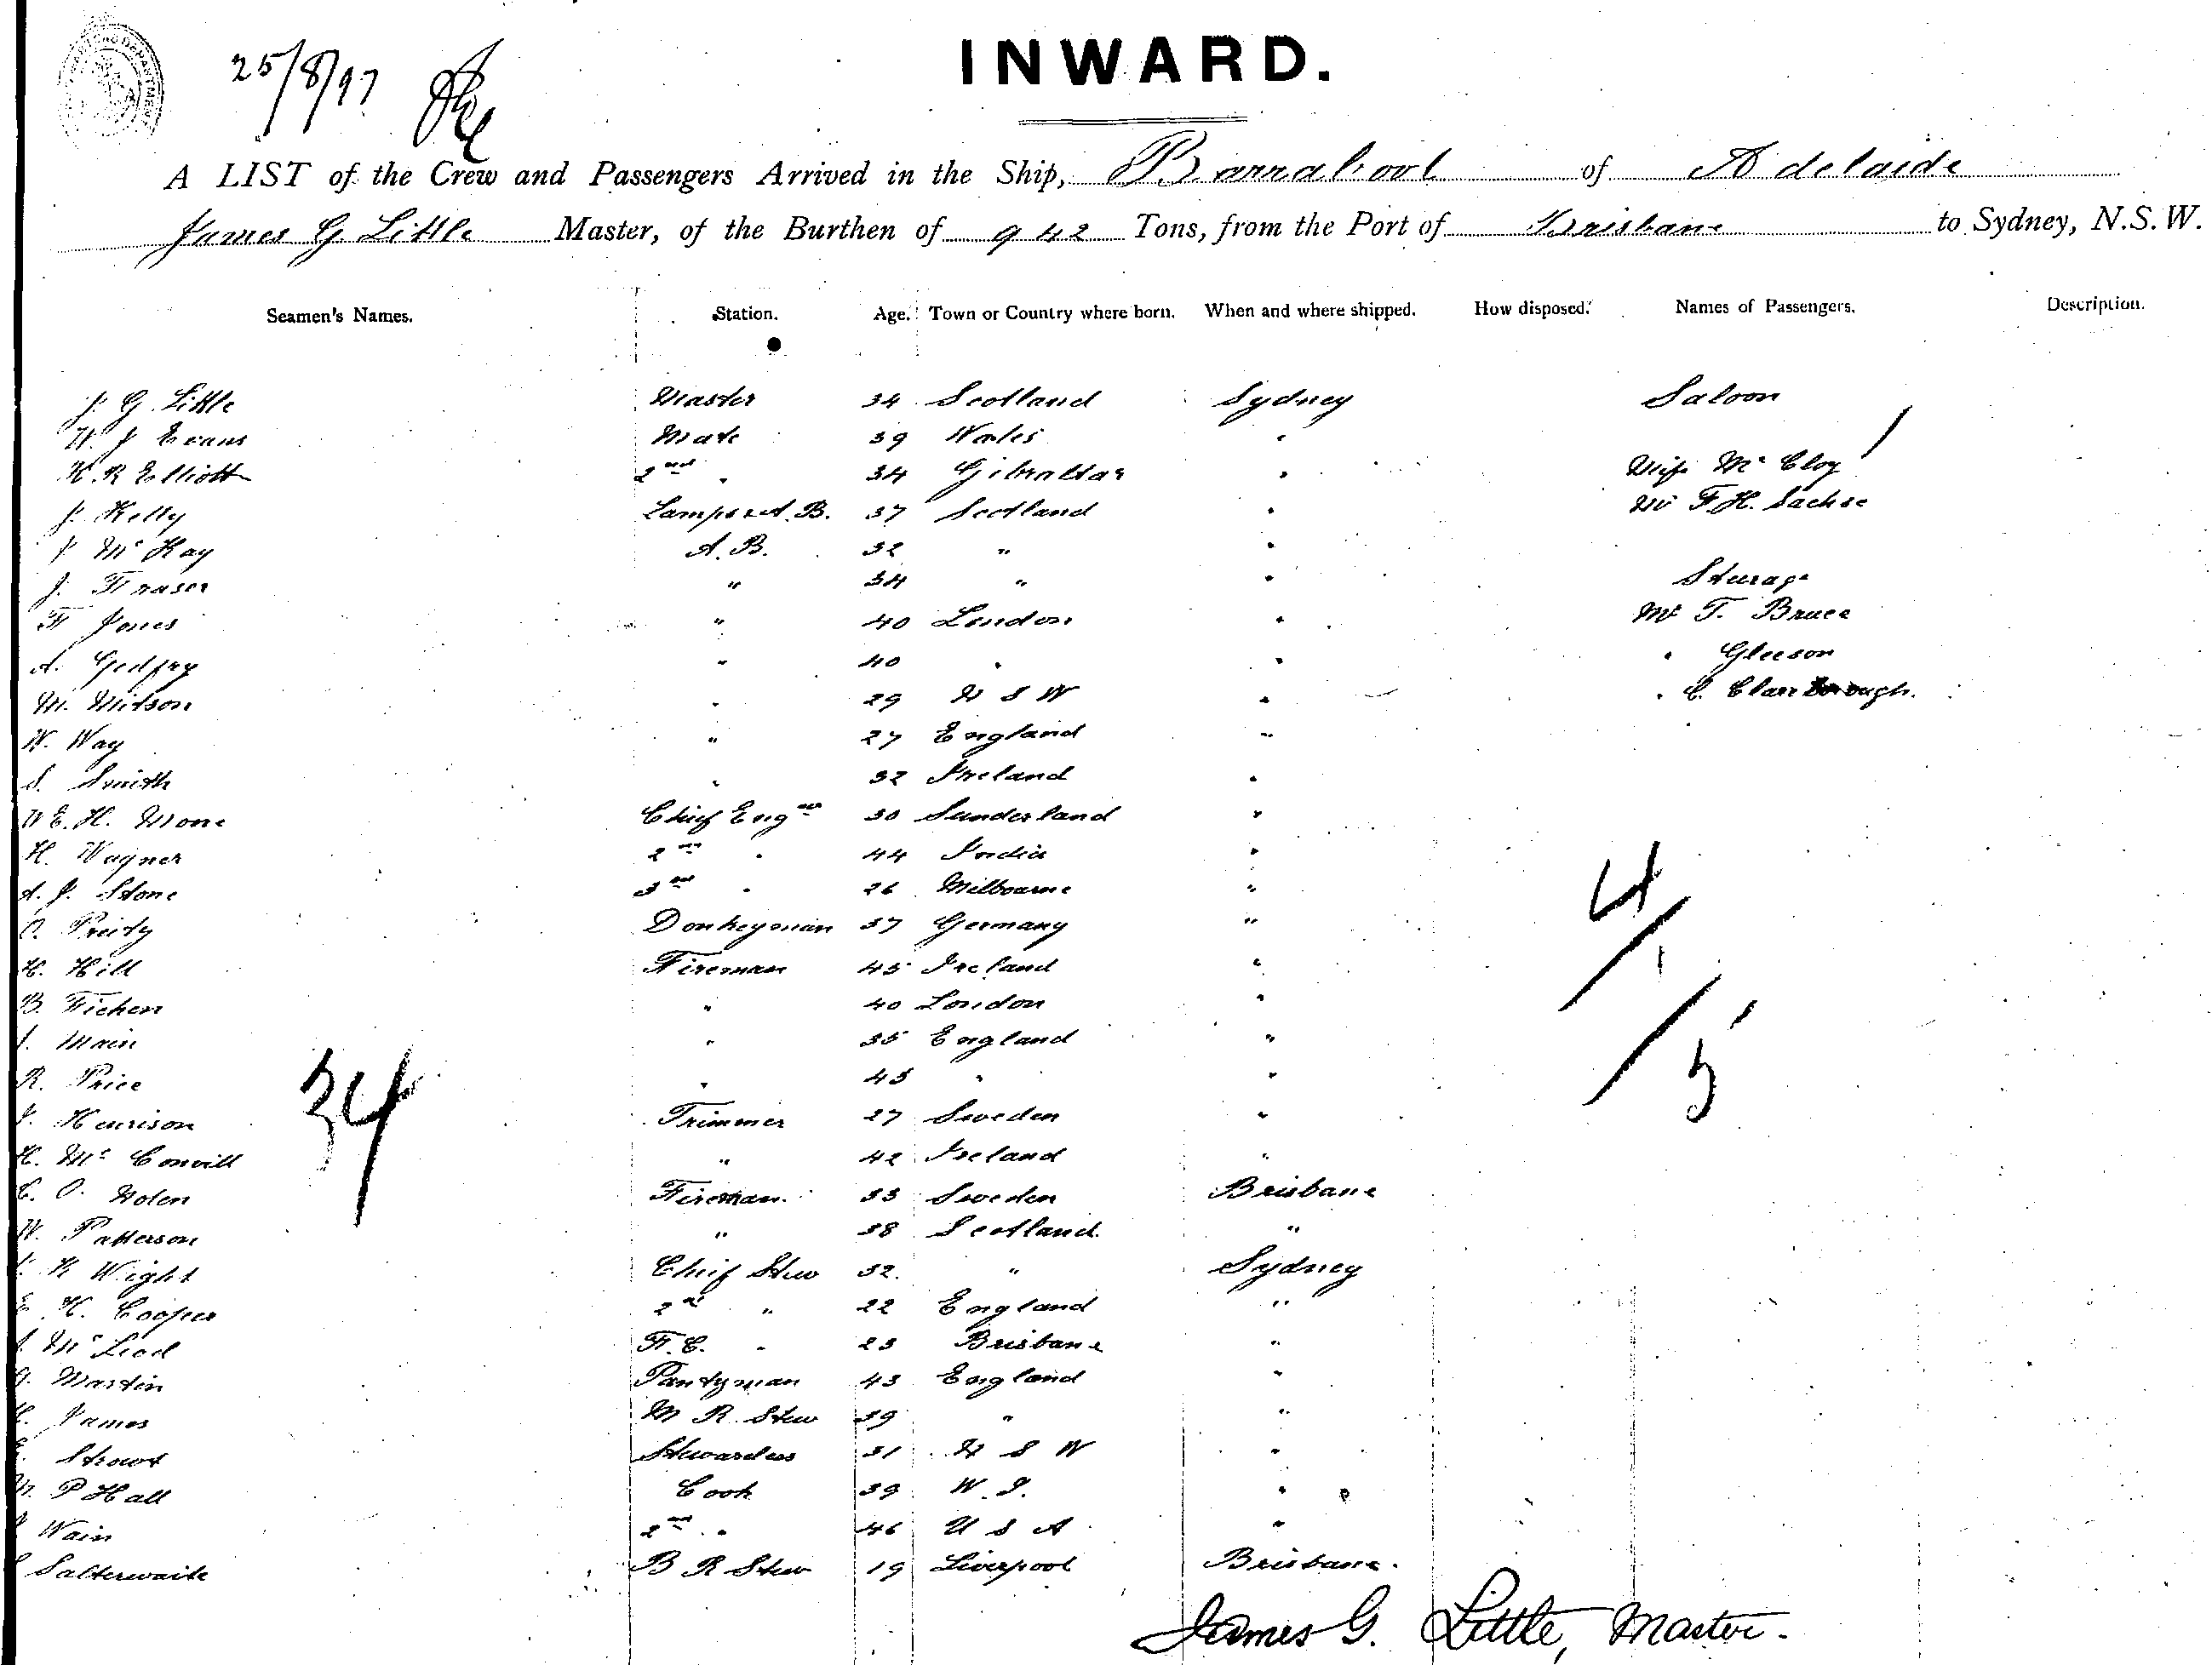 25/8/97
INWARD.
A LIST of the Crew and Passengers Arrived in the Ship, Barrabool of Adelaide
James G. Little Master, of the Burthen of 942 Tons, from the Port of Brisbane to Sydney, N.S.W.
Seamen's Names. Station. Age. Town or Country where born. When and where shipped. How disposed. Names of Passengers. Description.
J. G. Little Master 34 Scotland Sydney Saloon
W. J Evans Mate 39 Wales "
H. R Elliott 2nd " 34 Gibraltar " Miss Mc Cloy
J. Kelly Lamps & A.B. 37 Scotland " Mr F.H. Sachse
J Mc Kay A.B. 32 " "
J. Fraser " 34 " " Steerage
F Jones " 40 London " Mr T. Bruce
A. Godfry " 40 " " " Gleeson
M. Mitson " 29 N S W " " C. Clarrborough.
W. Way " 27 England "
S. Smith " 32 Ireland "
W E. H. Mone Chief Engr 30 Sunderland "
H. Wagner 2nd " 44 India "
A. J. Stone 3rd " 26 Melbourne "
Pridy Donkeyman 37 Germany "
H. Hill Fireman 45 Ireland "
B. Fichen " 40 London "
J. Main " 35 England "
R. Price " 43 " "
J. Henrison Trimmer 27 Sweden "
H. Mc Convill " 42 Ireland "
C. O. Nolen Fireman 33 Sweden Brisbane
W. Patterson " 38 Scotland "
J. K Wight Chief Stew 32 " Sydney
E. H. Cooper 2nd " 22 England "
J. Mc Leod F.C. " 23 Brisbane "
G. Martin Pantryman 43 England "
James M R Stew 39 " "
Strowt Stewardess 31 N S W "
P Hall Cook 39 W. I. "
Wain 2nd " 46 U S A "
Salterwaite B R Stew 19 Liverpool Brisbane.
34
4/1/5
James G. Little, Master.